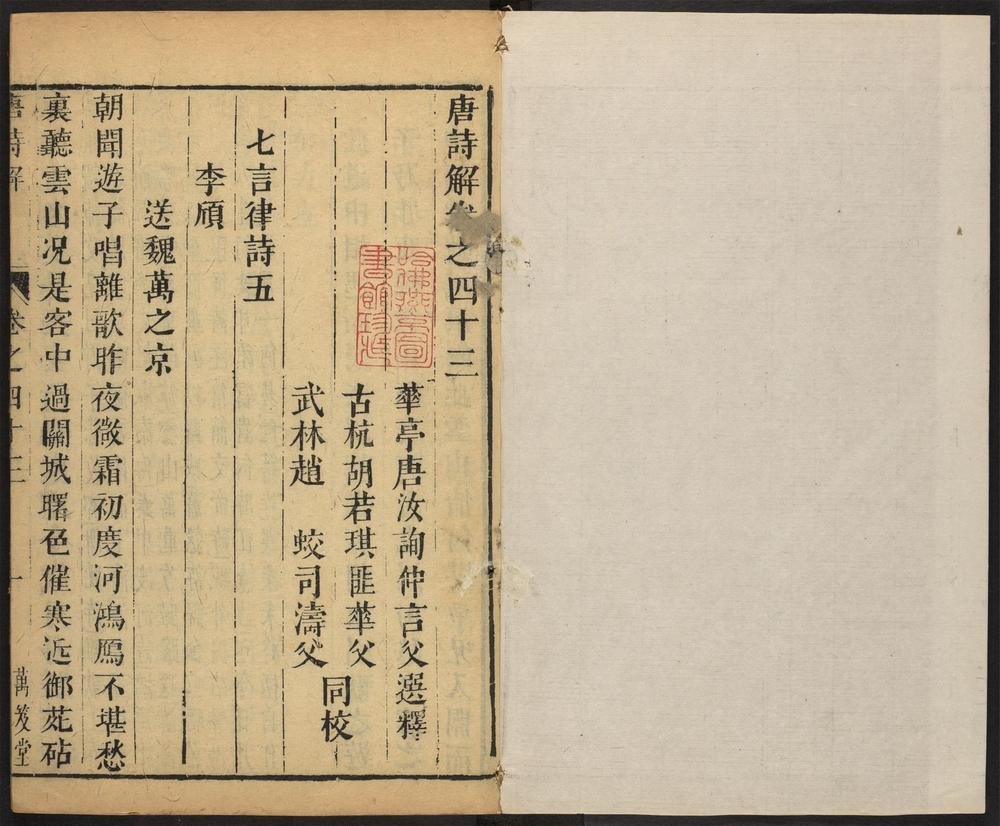 唐詩解卷之四十三
華亭唐汝詢仲言父選釋
古杭胡若琪匪華父
武林趙　蛟司濤父
同校
七言律詩五
李頎
送魏萬之京
朝聞遊子唱離歌昨夜微霜初度河鴻鴈不堪愁
裏聽雲山况是客中過關城曙色催寒近御苑砧
唐詩解
卷之四十三
一
萬笈堂
哈佛燕京圖
書館珍藏